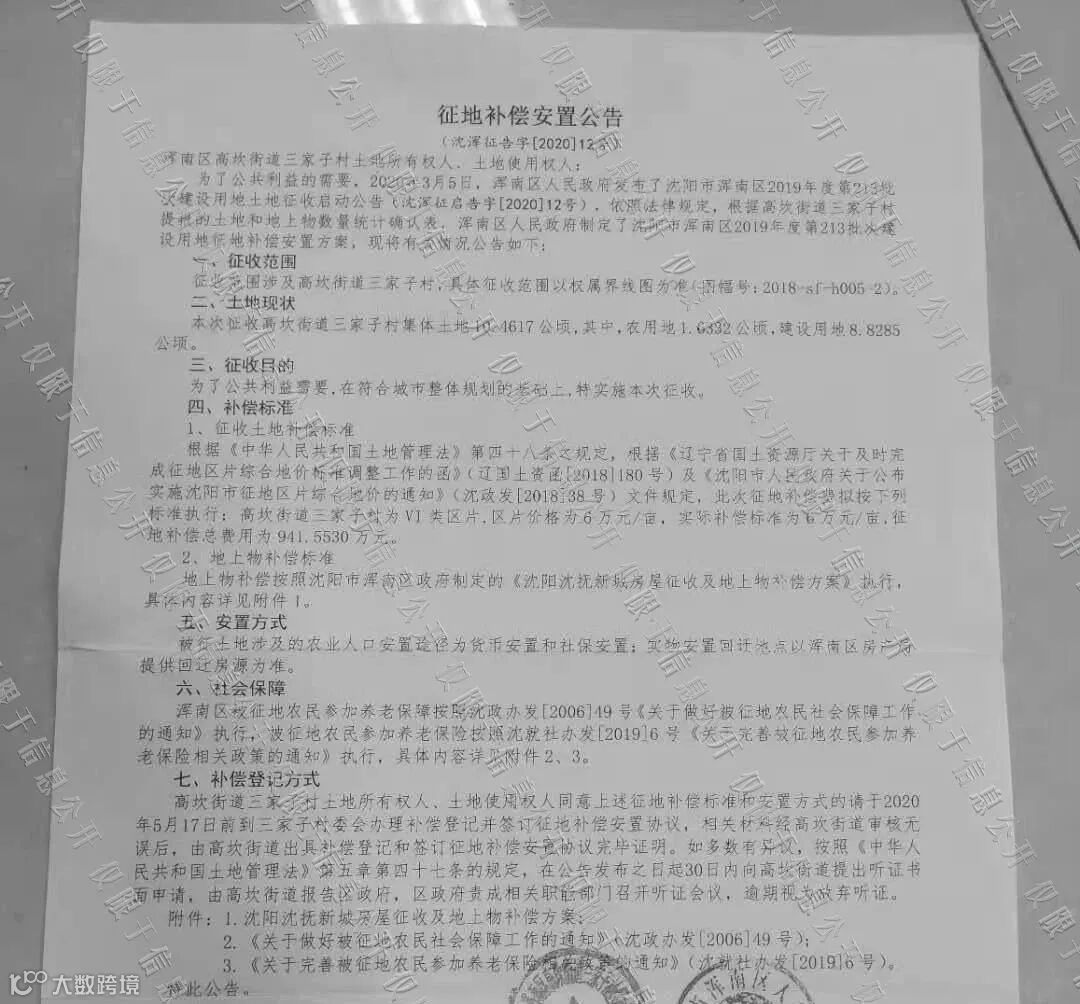 征地补偿安置公告
(沈浑征告字[2020]12号)
浑南区高坎街道三家子村土地所有权人、土地使用权人:
为了公共利益的需要,2020年3月5日,浑南区人民政府发布了沈阳市浑南区2019年度第213批
次建设用地土地征收启动公告(沈浑征启告字[2020]12号),依照法律规定,根据高坎街道三家子村
提报的土地和地上物数量统计确认表,浑南区人民政府制定了沈阳市浑南区2019年度第213批次建
设用地征地补偿安置方案,现将有关情况公告如下:
一、征收范围
征收范围涉及高坎街道三家子村,具体征收范围以权属界线图为准(图幅号:2018-sf-h005-2)。
二、土地现状
本次征收高坎街道三家子村集体土地10.4617公顷,其中,农用地1.6332公顷,建设用地8.8285
公顷。
三、征收目的
为了公共利益需要,在符合城市整体规划的基础上,特实施本次征收。
四、补偿标准
1、征收土地补偿标准
根据《中华人民共和国土地管理法》第四十八条之规定,根据《辽宁省国土资源厅关于及时完
成征地区片综合地价标准调整工作的函》(辽国土资函[2018]180号)及《沈阳市人民政府关于公布
实施沈阳市征地区片综合地价的通知》(沈政发[2018]38号)文件规定,此次征地补偿费拟按下列
标准执行:高坎街道三家子村为VI类区片,区片价格为6万元/亩,实际补偿标准为6万元/亩,征
地补偿总费用为941.5530万元。
2、地上物补偿标准
地上物补偿按照沈阳市浑南区政府制定的《沈阳沈抚新城房屋征收及地上物补偿方案》执行,
具体内容详见附件1。
五、安置方式
被征土地涉及的农业人口安置途径为货币安置和社保安置;实物安置回迁地点以浑南区房产局
提供回迁房源为准。
六、社会保障
浑南区被征地农民参加养老保障按照沈政办发[2006]49号《关于做好被征地农民社会保障工作
的通知》执行,被征地农民参加养老保险按照沈就社办发[2019]6号《关于完善被征地农民参加养
老保险相关政策的通知》执行,具体内容详见附件2、3。
七、补偿登记方式
高坎街道三家子村土地所有权人、土地使用权人同意上述征地补偿标准和安置方式的请于2020
年5月17日前到三家子村委会办理补偿登记并签订征地补偿安置协议,相关材料经高坎街道审核无
误后,由高坎街道出具补偿登记和签订征地补偿安置协议完毕证明。如多数有异议,按照《中华人
民共和国土地管理法》第五章第四十七条的规定,在公告发布之日起30日内向高坎街道提出听证书
面申请,由高坎街道报告区政府,区政府责成相关职能部门召开听证会议,逾期视为放弃听证。
附件:1.沈阳沈抚新城房屋征收及地上物补偿方案;
2.《关于做好被征地农民社会保障工作的通知》(沈政办发[2006]49号);
3.《关于完善被征地农民参加养老保险相关政策的通知》(沈就社办发[2019]6号)。
特此公告。
浑南区人
仅限于信息公开
大数跨境